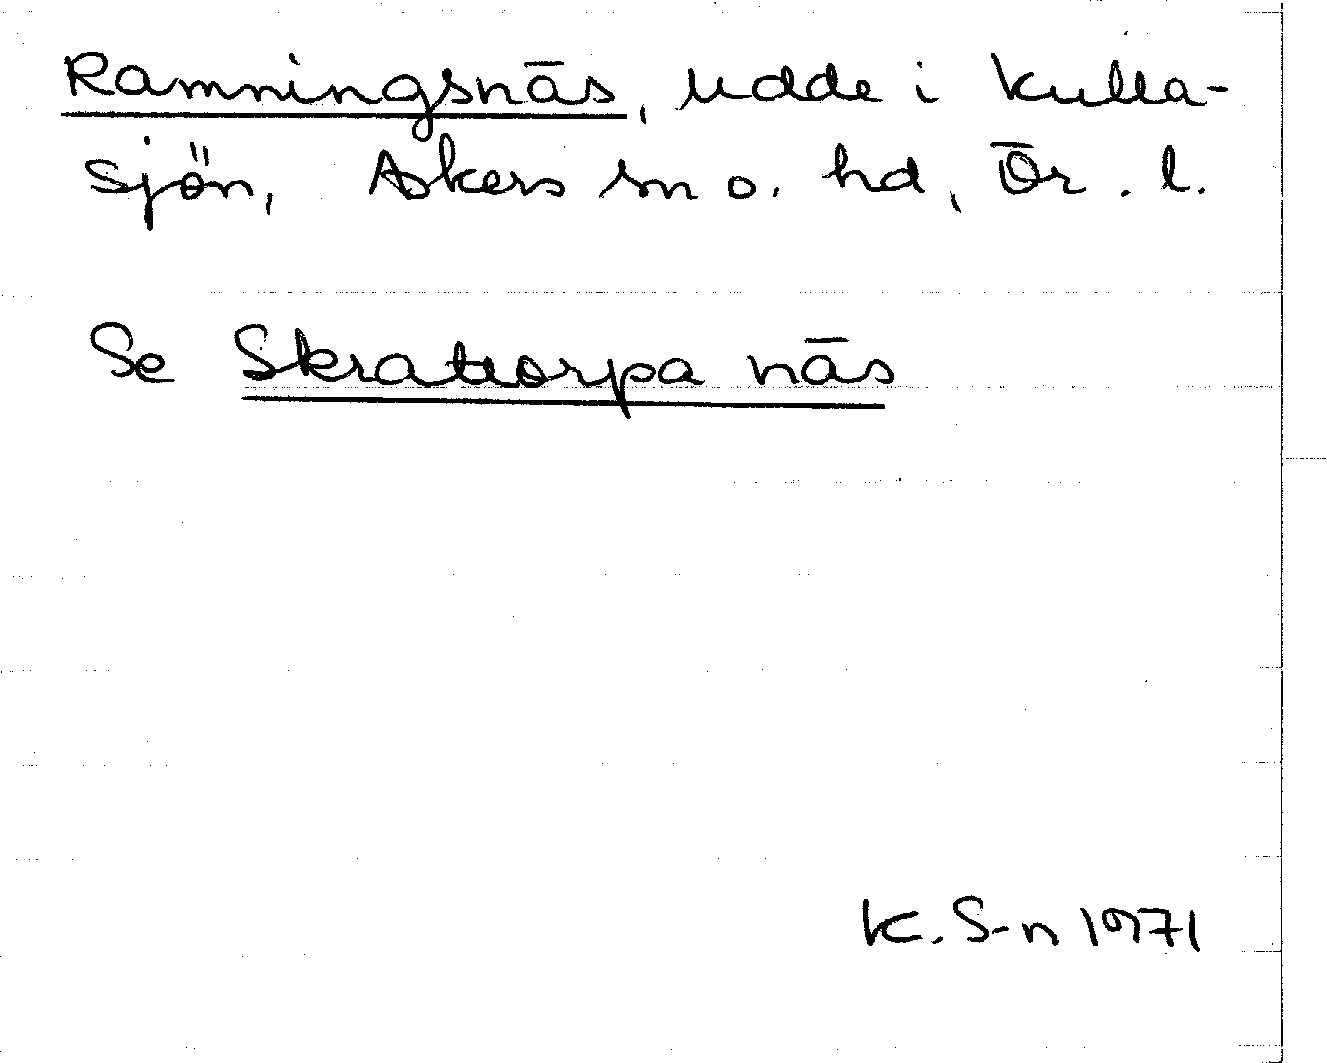 Ramningsnäs, udde i Kulla-
sjön, Askers sn o. hd, Ör. l.
Se Skrattorpa näs
K. S-n 1971